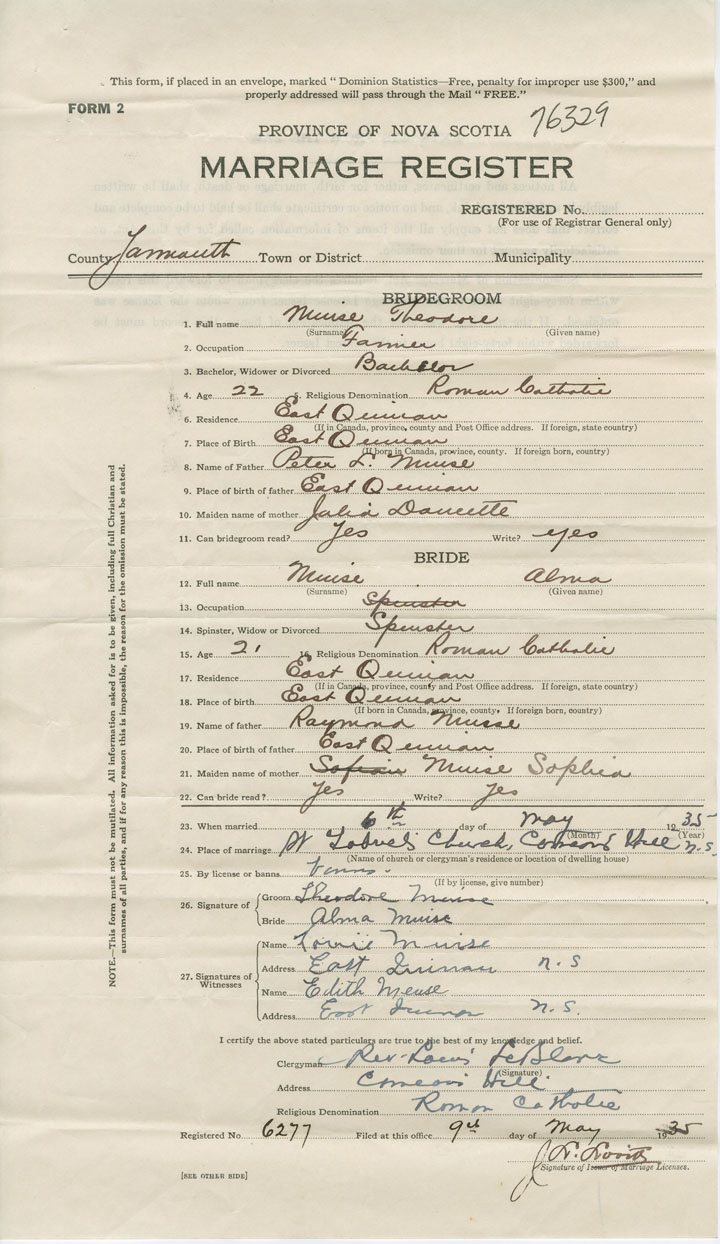 This form, if placed in an envelope, marked "Dominion Statistics—Free, penalty for improper use $300," and
properly addressed will pass through the Mail "FREE."
FORM 2
PROVINCE OF NOVA SCOTIA 76329
MARRIAGE REGISTER
REGISTERED No.
(For use of Registrar General only)
County Yarmouth Town or District Municipality
BRIDEGROOM
1. Full name Muise Theodore
(Surname) (Given name)
2. Occupation Farmer
3. Bachelor, Widower or Divorced Bachelor
4. Age 22 5. Religious Denomination Roman Catholic
6. Residence East Quinan
(If in Canada, province, county and Post Office address. If foreign, state country)
7. Place of Birth East Quinan
(If born in Canada, province, county. If foreign born, country)
8. Name of Father Peter L. Muise
9. Place of birth of father East Quinan
10. Maiden name of mother Julia Doucette
11. Can bridegroom read? Yes Write? yes
BRIDE
12. Full name Muise Alma
(Surname) (Given name)
13. Occupation Spinster
14. Spinster, Widow or Divorced Spinster
15. Age 21 16. Religious Denomination Roman Catholic
17. Residence East Quinan
(If in Canada, province, county and Post Office address. If foreign, state country)
18. Place of birth East Quinan
(If born in Canada, province, county. If foreign born, country)
19. Name of father Raymond Muise
20. Place of birth of father East Quinan
21. Maiden name of mother Muise Sophia
22. Can bride read? Yes Write? Yes
23. When married 6th day of May 1935
(Month) (Year)
24. Place of marriage St Gabriel's Church, Comeau's Hill N.S.
(Name of church or clergyman's residence or location of dwelling house)
25. By license or banns Banns.
(If by license, give number)
26. Signature of Groom Theodore Muise
Bride Alma Muise
27. Signatures of Witnesses
Name Louie Muise
Address East Quinan N.S
Name Edith Meuse
Address East Quinan N.S.
I certify the above stated particulars are true to the best of my knowledge and belief.
Clergyman Rev. Louis LeBlanc
(Signature)
Address Comeau's Hill
Religious Denomination Roman Catholic
Registered No. 6277 Filed at this office 9th day of May 1935
Signature of Issuer of Marriage Licenses.
[SEE OTHER SIDE]
NOTE.—This form must not be mutilated. All information asked for is to be given, including full Christian and
surnames of all parties, and if for any reason this is impossible, the reason for the omission must be stated.